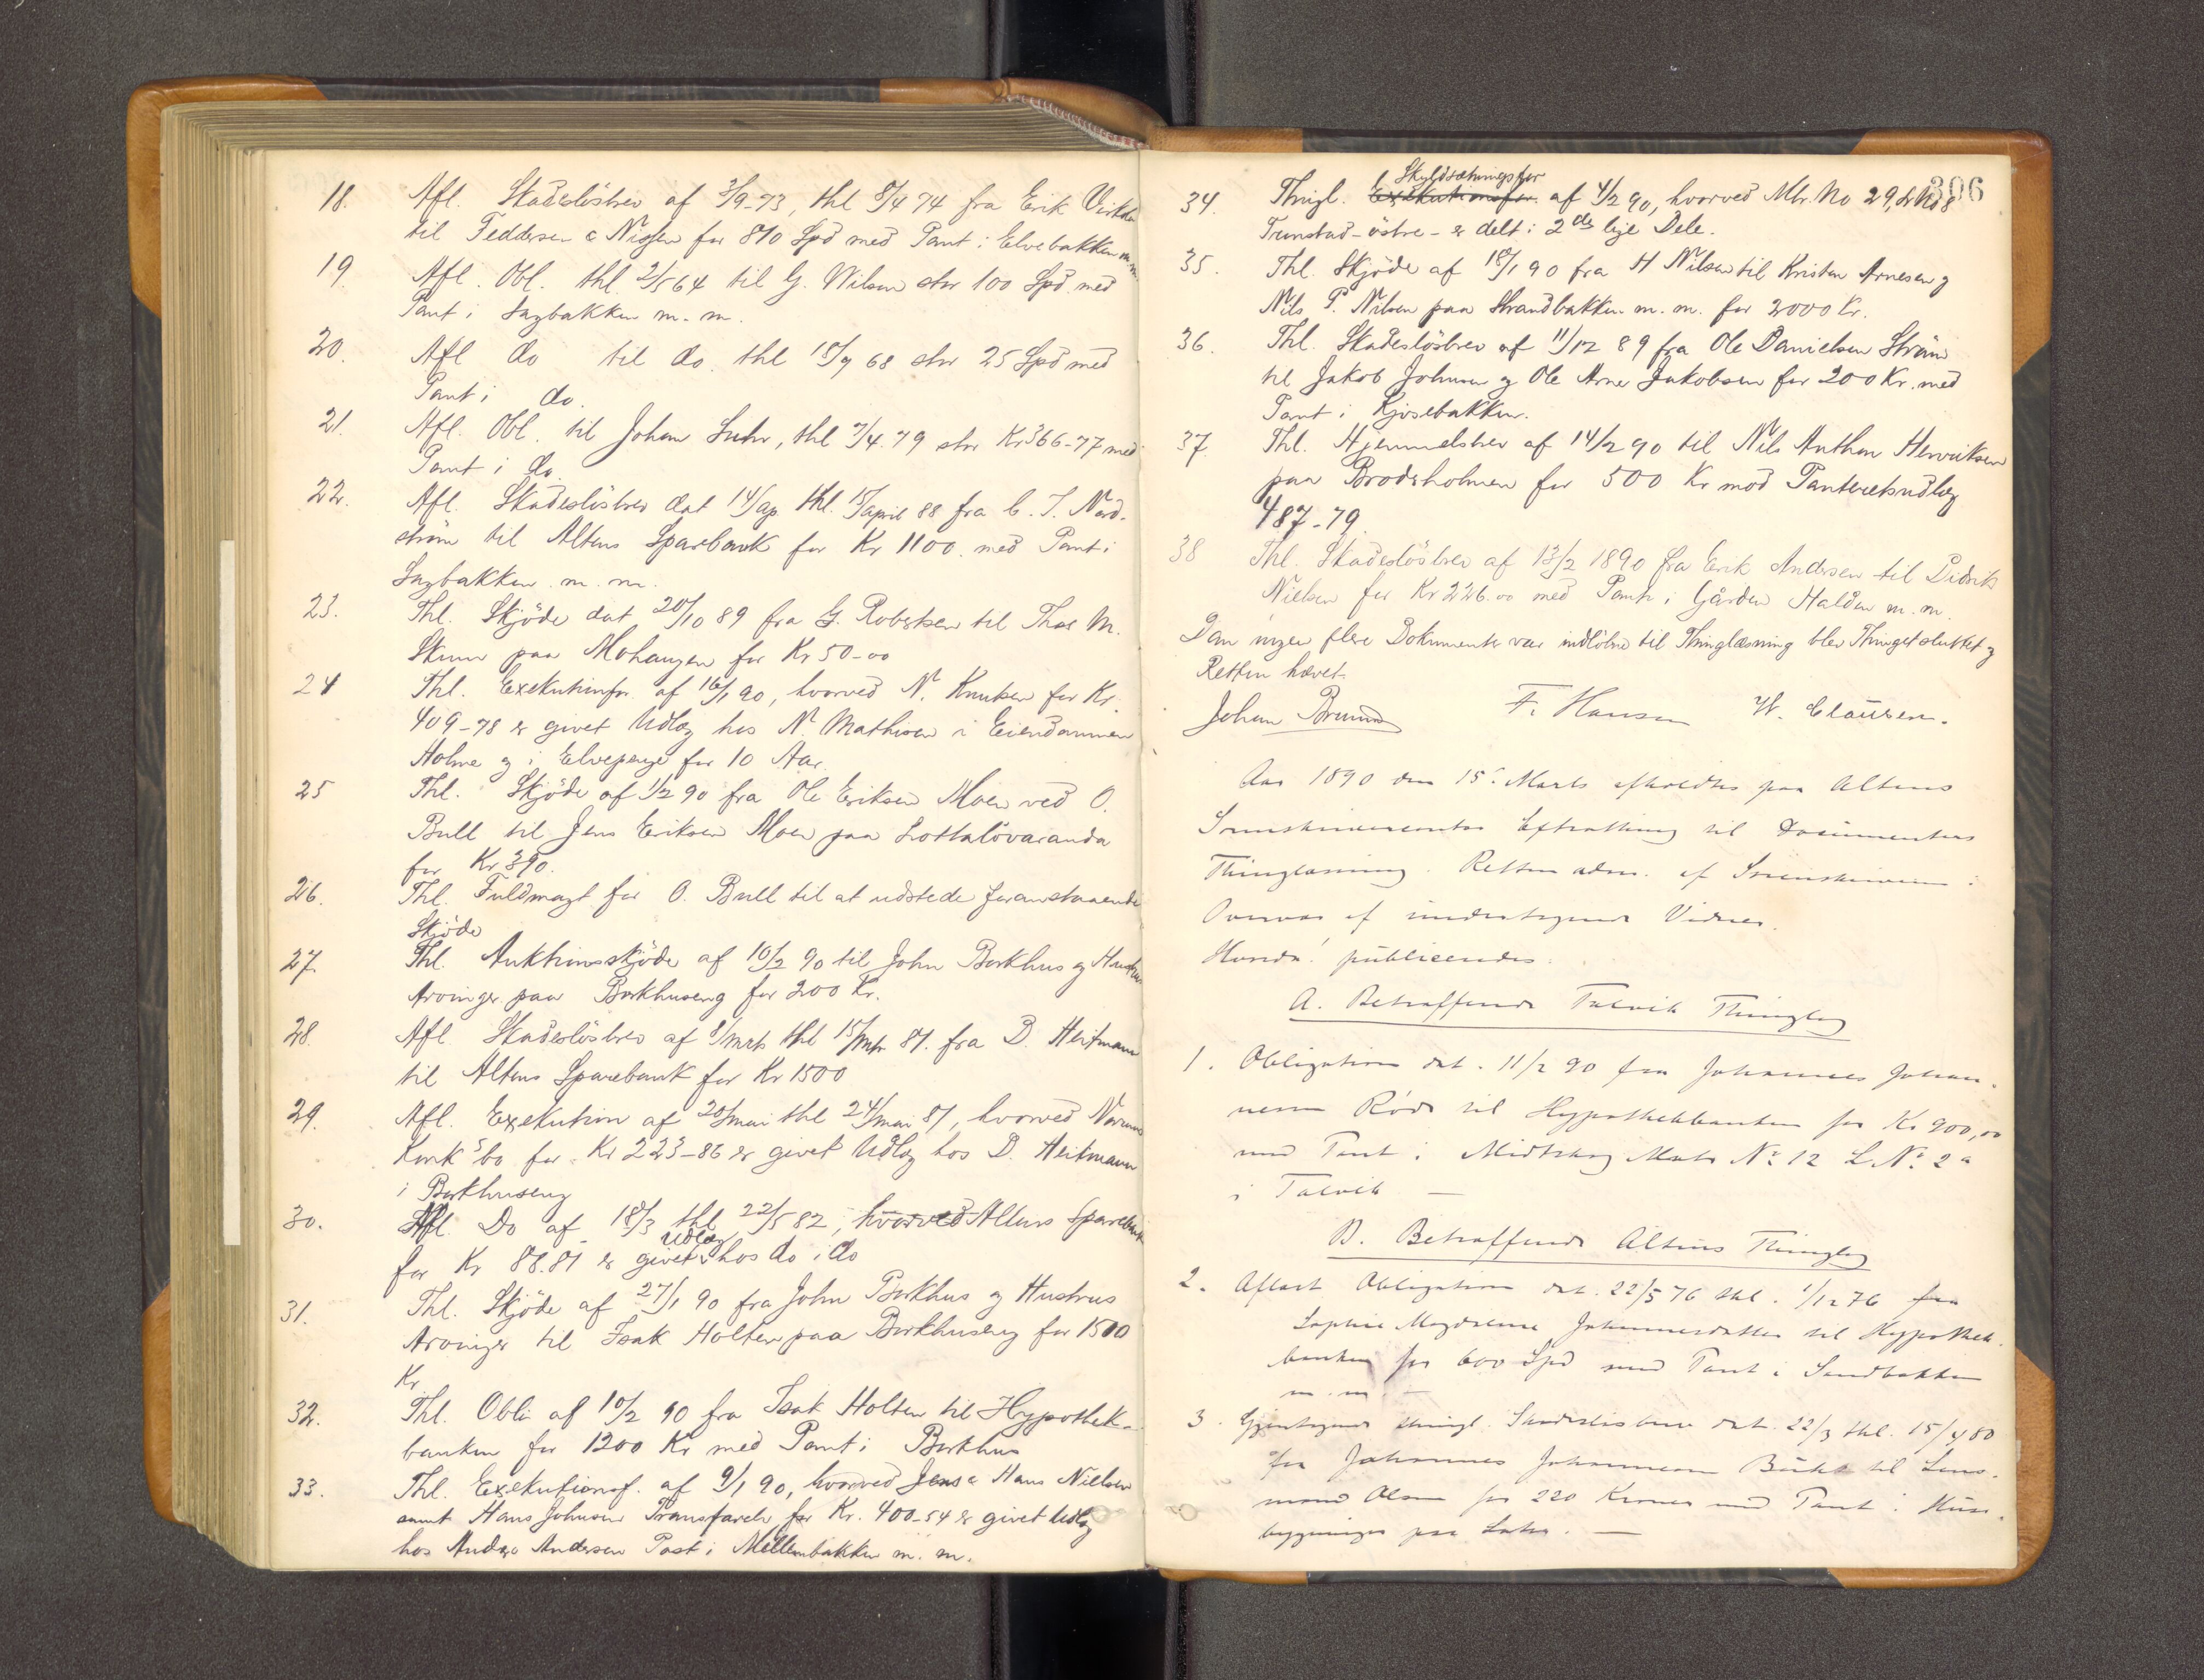 18. Afl. Skadeslösbrev af 3/9-73, thl 8/4 74 fra Erik
til Feddersen & Nissen for 810 Spd med Pant i Elvebakken m.m.
19. Afl. Obl. thl. 2/5 64 til G. Nilsen stor 100 Spd. med
Pant i Sagbakken m. m.
20. Afl do til do. thl 18/9 68 stor 25 Spd med
Pant i do.
21. Afl. Obl. til Johan Suhr, thl 7/4. 79 stor Kr 366-77 med
Pant i do.
22. Afl. Skadeslösbrev dat 14/ap. thl. 15/april 88 fra C. J. Nord-
ström til Altens Sparebank for Kr 1100. med Pant i
Sagbakken m. m.
23. Thl. Skjöde dat 20/10 89 fra G. Robertsen til Thos M.
Skum paa Mohaugen for Kr 50-00
24 Thl. Exekutionfor. af 16/1 90, hvorved N. Knutsen for Kr.
409-78 er givet Udlæg hos N. Mathisen i Eiendommen
Holme og i Elvepenge for 10 Aar.
25 Thl. Skjöde af 1/2 90 fra Ole Eriksen Moen ved O.
Bull til Jens Eriksen Moen paa
for Kr 390.
26. Thl. Fuldmagt for O. Bull til at udstede foranstaaende
Skjöde
27. Thl. Auktionsskjöde af 10/2 90 til John Borkhus og Hustrus
Arvinger paa Borkhuseng for 200 Kr.
28. Afl. Skadeslösbrev af 8/mrts thl 15/mrts 81. fra D. Heitmann
til Altens Sparebank for Kr 1500
29. Afl. Exekution af 20/mai thl 24/mai 81, hvorved
Konk's bo for Kr 223-86 er givet Udlæg hos D. Heitmann
i Borkhuseng
30. Afl. Do af 18/3 thl 22/5 82, hvorved Altens Sparebank
for Kr 88.81 er givet Udlæg hos do i do
31. Thl. Skjöde af 27/1 90 fra John Borkhus og Hustrus
Arvinger til Isak Holten paa Borkhuseng for 1500
Kr
32. Thl. Obli af 10/2 90 fra Isak Holten til Hypothek-
banken for 1200 Kr med Pant i Borkhus
33. Thl. Exekutionsf. af 9/1 90, hvorved Jens & Hans Nielsen
samt Hans Johnsen for Kr. 400-54 er givet Udlæg
hos Anders Andersen Post i Mellembakken m. m.
306
34. Thingl. Exekutionsfor. Skyldsætningsfor af 4/2 90, hvorved Mtr. No 29, L No 8
östre - er delt i 2de lige Dele.
35. Thl. Skjöde af 18/1 90 fra H Nilsen til Kristen Arnesen og
Nils P. Nilsen paa Strandbakken m. m. for 2000 Kr.
36. Thl. Skadeslösbrev af 11/12 89 fra Ole Danielsen Ström
til Jakob Johnsen og Ole Arne Jakobsen for 200 Kr. med
Pant i Kjosebakken.
37. Thl. Hjemmelsbrev af 14/2 90 til Nils Anthon Henriksen
paa Brodsholmen for 500 Kr mod Panteretsudlæg
487-79.
38 Thl. Skadeslösbrev af 13/2 1890 fra Erik Andersen til Didrik
Nielsen for Kr 226.00 med Pant i Gården Halden m. m.
Dam ingen flere Dokumenter var indlöbne til Thinglæsning blev Thinget sluttet og
Retten hævet.
Johan F. Hansen W. Clausen.
Aar 1890 den 15de Marts afholdtes paa Altens
Sorenskrivercontor Extrathing til Documenters
Thinglæsning. Retten adm. af Sorenskriveren i
Overvær af undertegnede Vidner.
Hvorda! publicerdes:
A. Betræffende Talvik Thinglag
1. Obligation dat. 11/2 90 fra Johannes Johan-
nesen til Hypothekbanken for Kr 900,00
med Pant i Midtskog Matr No 12 L No 2a
i Talvik —
B. Betræffende Altens Thinglag
2. Aflæst Obligation dat. 22/5 76 thl. 1/12 76 fra
Sophie Magdalena Johannesdatter til Hypothek-
banken for 600 Spd med Pant i Sandbakken
m. m. —
3. Gjentagende thingl. Skadeslösbrev dat. 22/3 thl. 15/4 80
fra Johannes Johannesen til Lens-
mand Olsen for 220 Kroner med Pant i Huse-
bygninger paa